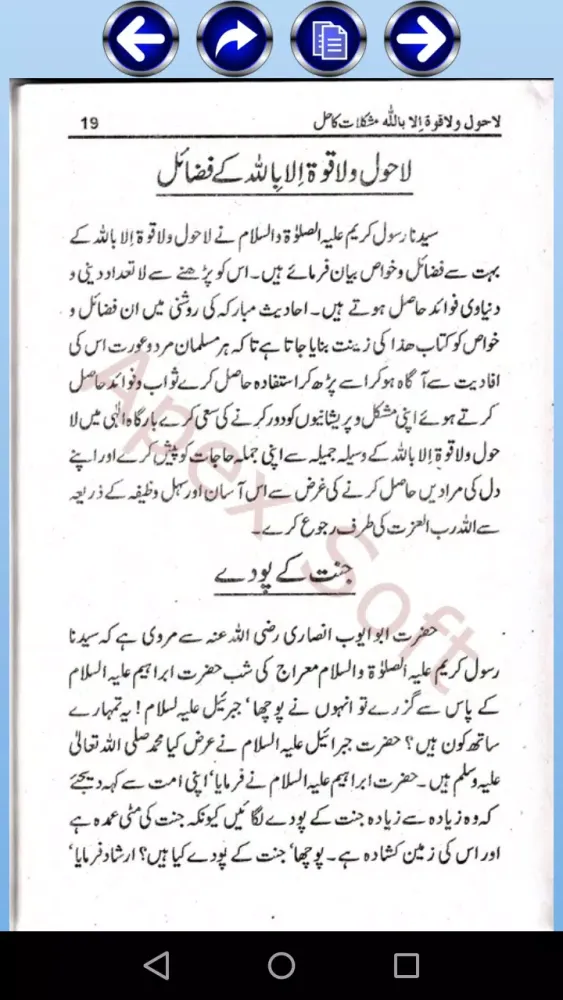 لا حول ولا قوة إلا بالله مشکلات کا حل 19
لا حول ولا قوة إلا بالله کے فضائل
سیدنا رسول کریم علیہ الصلوٰۃ والسلام نے لا حول ولا قوة إلا بالله کے
بہت سے فضائل و خواص بیان فرمائے ہیں۔ اس کو پڑھنے سے لاتعداد دینی و
دنیاوی فوائد حاصل ہوتے ہیں۔ احادیث مبارکہ کی روشنی میں ان فضائل و
خواص کو کتاب ھذا کی زینت بنایا جاتا ہے تاکہ ہر مسلمان مرد و عورت اس کی
افادیت سے آگاہ ہو کر اسے پڑھ کر استفادہ حاصل کرے ثواب و فوائد حاصل
کرتے ہوئے اپنی مشکل و پریشانیوں کو دور کرنے کی سعی کرے بارگاہ الٰہی میں لا
حول ولا قوة إلا بالله کے وسیلہ جمیلہ سے اپنی جملہ حاجات کو پیش کرے اور اپنے
دل کی مرادیں حاصل کرنے کی غرض سے اس آسان اور سہل وظیفہ کے ذریعہ
سے اللہ رب العزت کی طرف رجوع کرے۔
جنت کے پودے
حضرت ابو ایوب انصاری رضی اللہ عنہ سے مروی ہے کہ سیدنا
رسول کریم علیہ الصلوٰۃ والسلام معراج کی شب حضرت ابراہیم علیہ السلام
کے پاس سے گزرے تو انہوں نے پوچھا‘ جبرئیل علیہ لسلام! یہ تمہارے
ساتھ کون ہیں؟ حضرت جبرائیل علیہ السلام نے عرض کیا محمد صلی اللہ تعالیٰ
علیہ وسلم ہیں۔ حضرت ابراہیم علیہ السلام نے فرمایا‘ اپنی امت سے کہہ دیجئے
کہ وہ زیادہ سے زیادہ جنت کے پودے لگائیں کیونکہ جنت کی مٹی عمدہ ہے
اور اس کی زمین کشادہ ہے۔ پوچھا‘ جنت کے پودے کیا ہیں؟ ارشاد فرمایا‘
Apex Soft